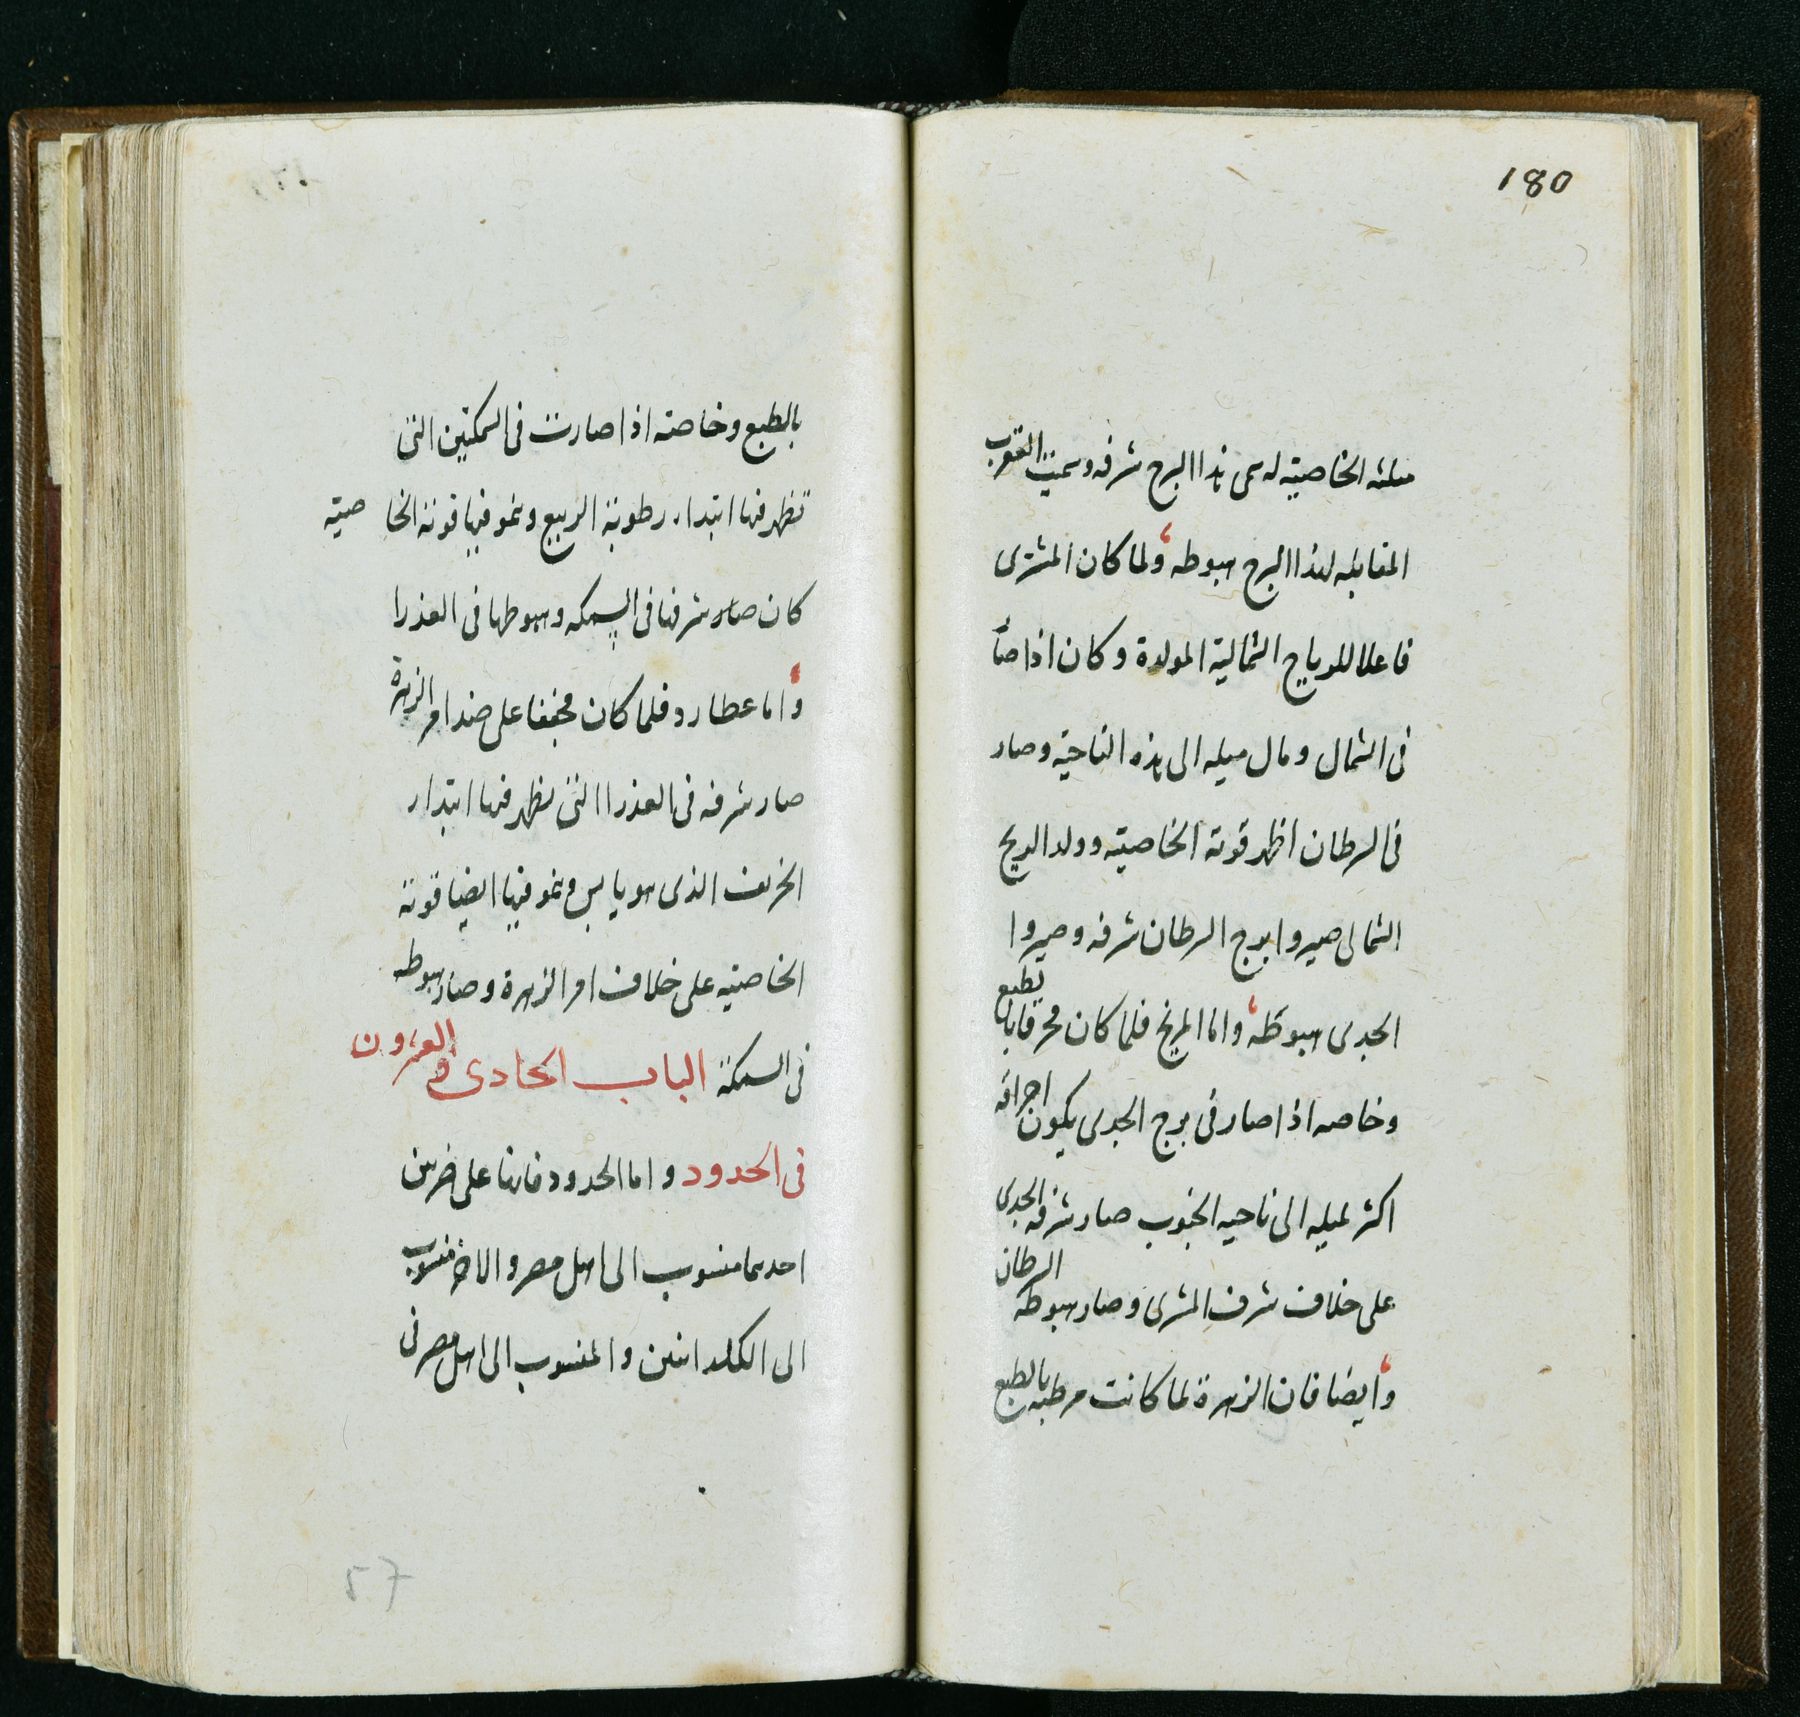 180
مثلثه الخاصية له سمى هذا البرج شرفه وسميت العقرب
المقابلة لهذا البرج هبوطه ولما كان المشترى
فاعلا للرياح الشمالية المولدة وكان اذا صار
فى الشمال ومال ميله الى هذه الناحية وصار
فى السرطان اظهر قوته الخاصية وولد الريح
الشمالى صيروا برج السرطان شرفه وصيروا
الجدى هبوطه واما المريخ فلما كان محرقا بالطبع
وخاصه اذا صار فى برج الجدى يكون احراقه
اكثر لميله الى ناحيه الجنوب صار شرفه الجدى
على خلاف شرف المشترى وصار هبوطه السرطان
وايضا فان الزهرة لما كانت مرطبه بالطبع
بالطبع وخاصته اذا صارت فى السمكتين التى
تظهر فيها ابتداء رطوبة الربيع وتمو فيها قوته الخاصية
كان صار شرفها فى السمكه وهبوطها فى العذرا
واما عطارد فلما كان مجففا على ضد امر الزهرة
صار شرفه فى العذرا التى يظهر فيها ابتداء
الخريف الذى هو يابس وتمو فيها ايضا قوته
الخاصية على خلاف امر الزهرة وصار هبوطه
فى السمكة الباب الحادى والعشرون
فى الحدود واما الحدود فانها على ضربين
احدهما منسوب الى اهل مصر والاخر منسوب
الى الكلدانيين والمنسوب الى اهل مصر فى
57